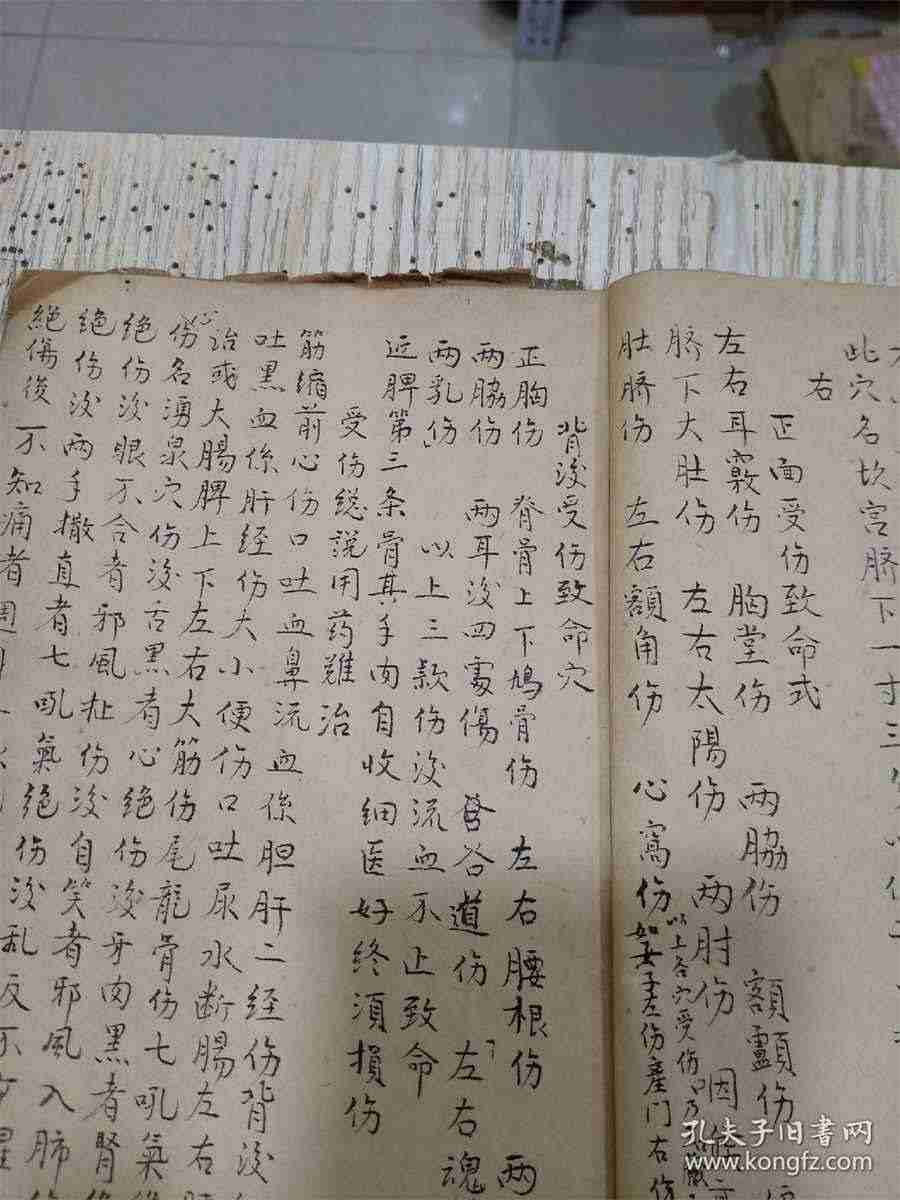 此穴名坎宫脐下一寸三
右
正面受伤致命式
左右耳窍伤 胸堂伤 两脇伤 額顖伤
脐下大肚伤 左右太陽伤 两肘伤 咽
肚脐伤 左右額角伤 心窩伤 以上各穴受伤 如女子左伤産门右伤
背後受伤致命穴
正胸伤 脊骨上下鳩骨伤 左右腰根伤 两
两脇伤 两耳後四處傷 谷道伤 左右魂
两乳伤 以上三款伤後流血不止致命
近脾第三条骨其手肉自收细医好终須損伤
受伤総説用药難治
筋缩前心伤口吐血鼻流血係胆肝二经伤背後
吐黑血係肝经伤大小便伤口吐尿水断腸左右
治或大腸脾上下左右大筋伤尾龍骨伤七吼氣
伤名湧泉穴伤後舌黑者心絶伤後牙肉黑者腎
绝伤後眼不合者邪風
绝伤後两手撒直者七吼氣绝伤後
絕傷後不知痛者週
伤後自笑者邪風入肺
孔夫子旧书网
www.kongfz.com